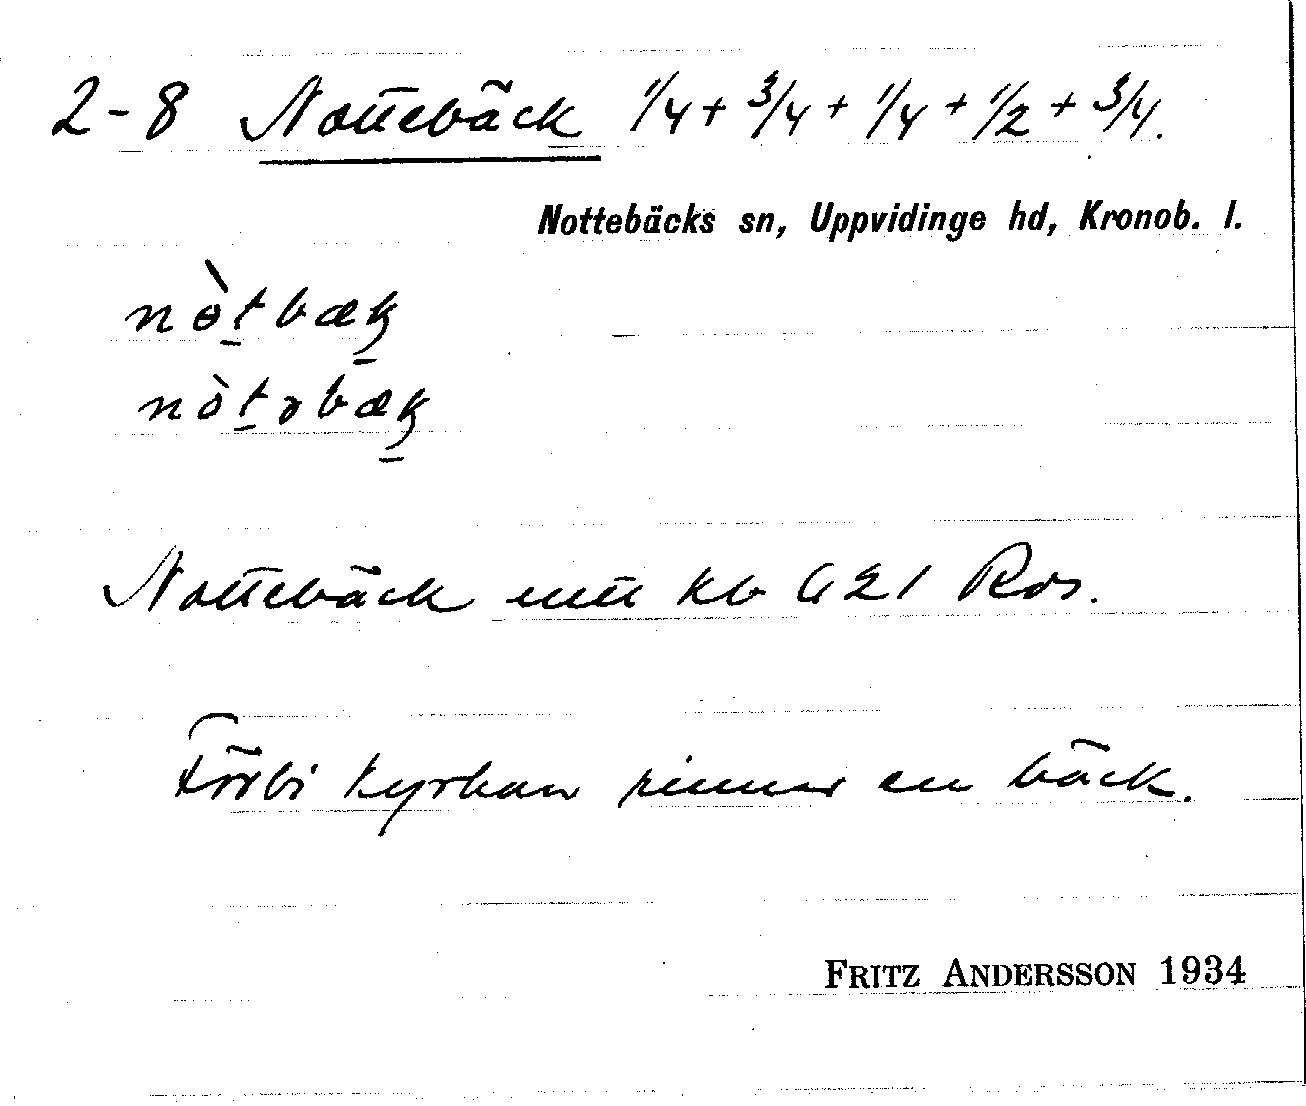 2-8 Nottebäck 1/4 + 3/4 + 1/4 + 1/2 + 3/4.
Nottebäcks sn, Uppvidinge hd, Kronob. l.
Nottebäck kb 621 Ros.
Förbi kyrkan rinner en bäck.
FRITZ ANDERSSON 1934